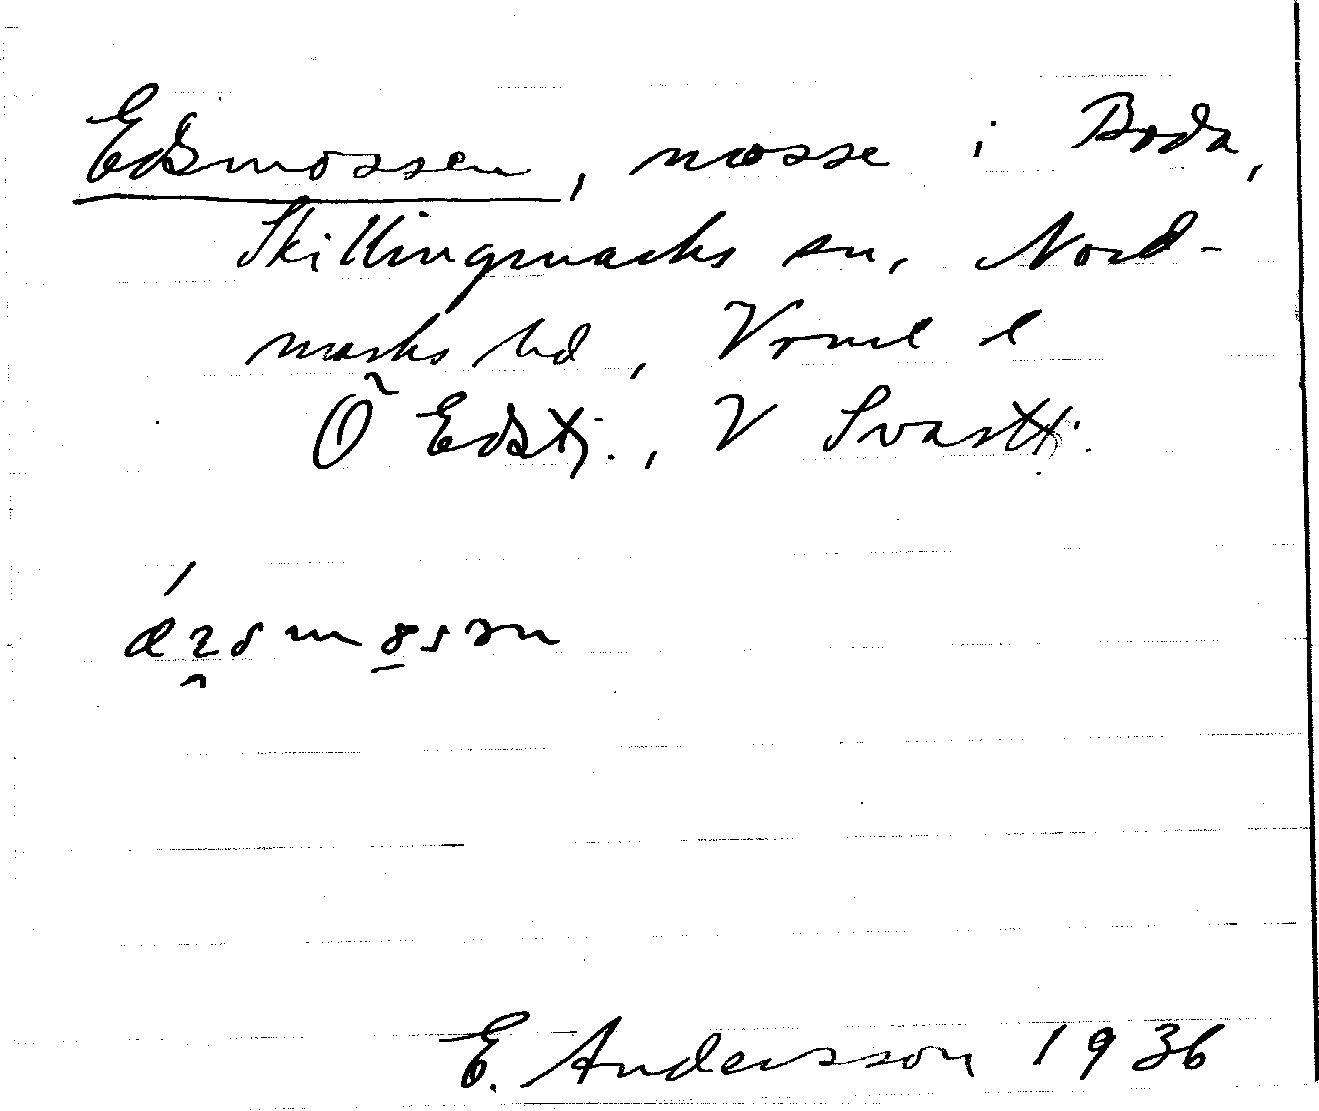 Edsmossen, mosse i Boda,
Skillingmarks sn, Nord-
marks hd, Vrml l
Ö Edstj., V Svarttj.
E. Andersson 1936